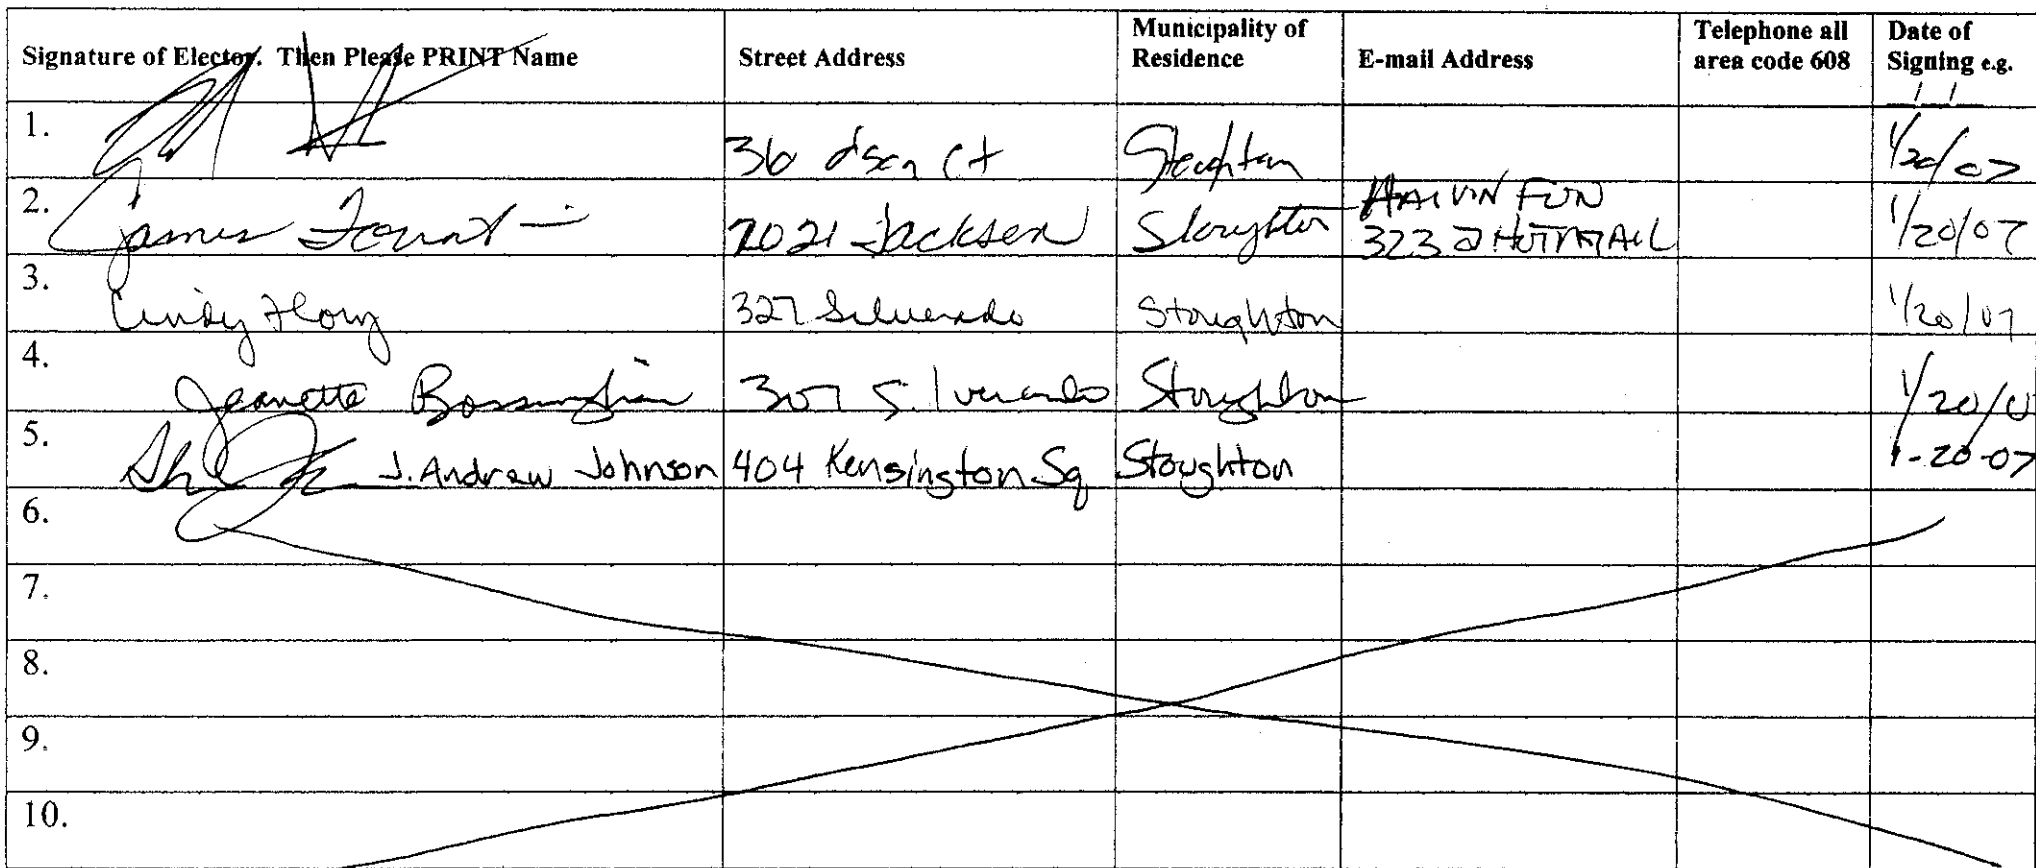 Signature of Elector. Then Please PRINT Name Street Address Municipality of Residence E-mail Address Telephone all area code 608 Date of Signing e.g. / /
1. 36 Ct Stoughton 1/20/07
2. James 2021 Jackson Stoughton HAIVIN FUN 323 @ HOTMAIL 1/20/07
3. Cindy Flory 327 Silverado Stoughton 1/20/07
4. Jeanette 307 Silverado Stoughton 1/20/0
5. J. Andrew Johnson 404 Kensington Sq Stoughton 1-20-07
6.
7.
8.
9.
10.